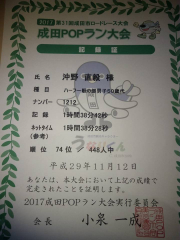 2017 第31回成田市ロードレース大会
成田POPラン大会
記録証
氏名 沖野 直毅 様
種目 ハーフ一般の部男子50歳代
ナンバー 1212
記録 1時間38分42秒
ネットタイム 1時間38分28秒
(参考)
順位 74位 / 448人中
平成29年11月12日
あなたは、本大会において上記の成績で
完走されたことを証明します。
2017成田POPラン大会実行委員会
会長 小泉 一成